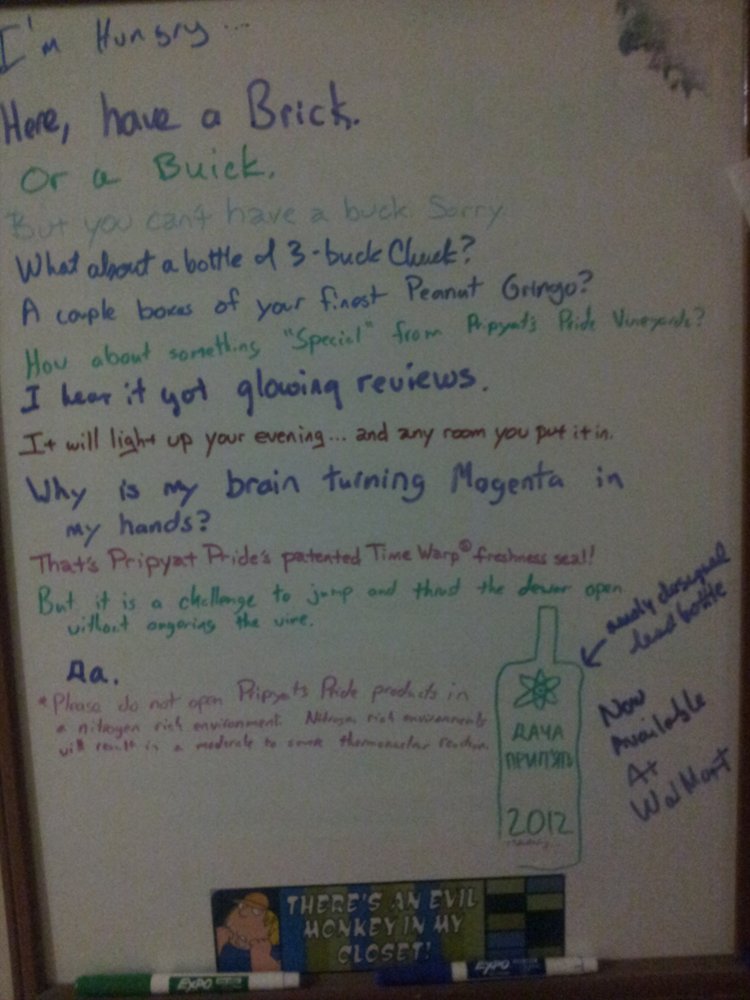 I'm Hungry...
Here, have a Brick.
Or a Buick.
But you can't have a buck. Sorry.
What about a bottle of 3-buck Chuck?
A couple boxes of your finest Peanut Gringo?
How about something "Special" from Pripyat's Pride Vineyards?
I hear it got glowing reviews.
It will light up your evening... and any room you put it in.
Why is my brain turning Magenta in
my hands?
That's Pripyat Pride's patented Time Warp® freshness seal!
But it is a challenge to jump and thrust the dewar open
without angering the vine.
Aa.
*Please do not open Pripyat's Pride products in
a nitrogen rich environment. Nitrogen rich environments
will result in a moderate to severe thermonuclear reaction.
newly designed
lead bottle
Now
Available
At
WalMart
ДАЧА
ПРИПЯТЬ
2012
THERE'S AN EVIL
MONKEY IN MY
CLOSET!
EXPO
EXPO